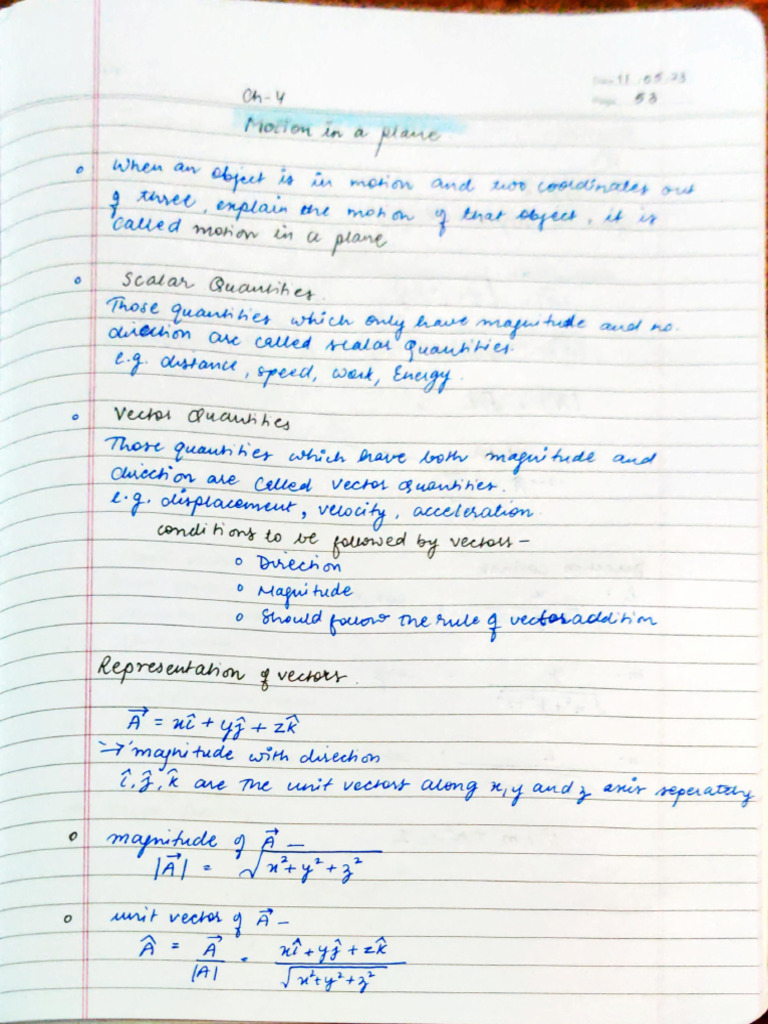 11.05.23
Ch-4
53
Motion in a plane
When an object is in motion and two coordinates out
of three, explain the motion of that object, it is
called motion in a plane
Scalar Quantities.
Those quantities which only have magnitude and no.
direction are called scalar Quantities.
e.g. distance, speed, work, Energy.
Vector Quantities
Those quantities which have both magnitude and
direction are called vector quantities.
e.g. displacement, velocity, acceleration.
conditions to be followed by vectors -
Direction
Magnitude
Should follow the rule of vector addition
Representation of vectors.
A⃗ = xî + yĵ + zk̂
→ magnitude with direction
î, ĵ, k̂ are the unit vectors along x, y and z axis seperately
magnitude of A⃗ -
|A⃗| = √x²+y²+z²
unit vector of A⃗ -
Â = A⃗/|A| = xî+yĵ+zk̂/√x²+y²+z²